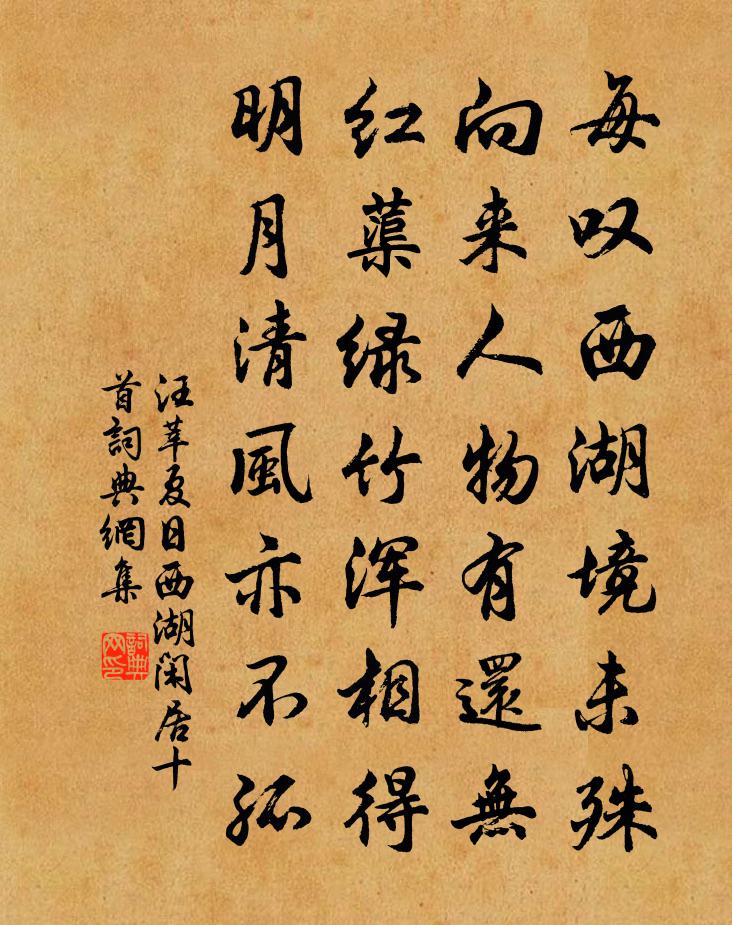 每叹西湖境未殊
向来人物有還無
红蕖绿竹浑相得
明月清風亦不孤
汪莘夏日西湖閑居十
首詞典網集
詞典
网印